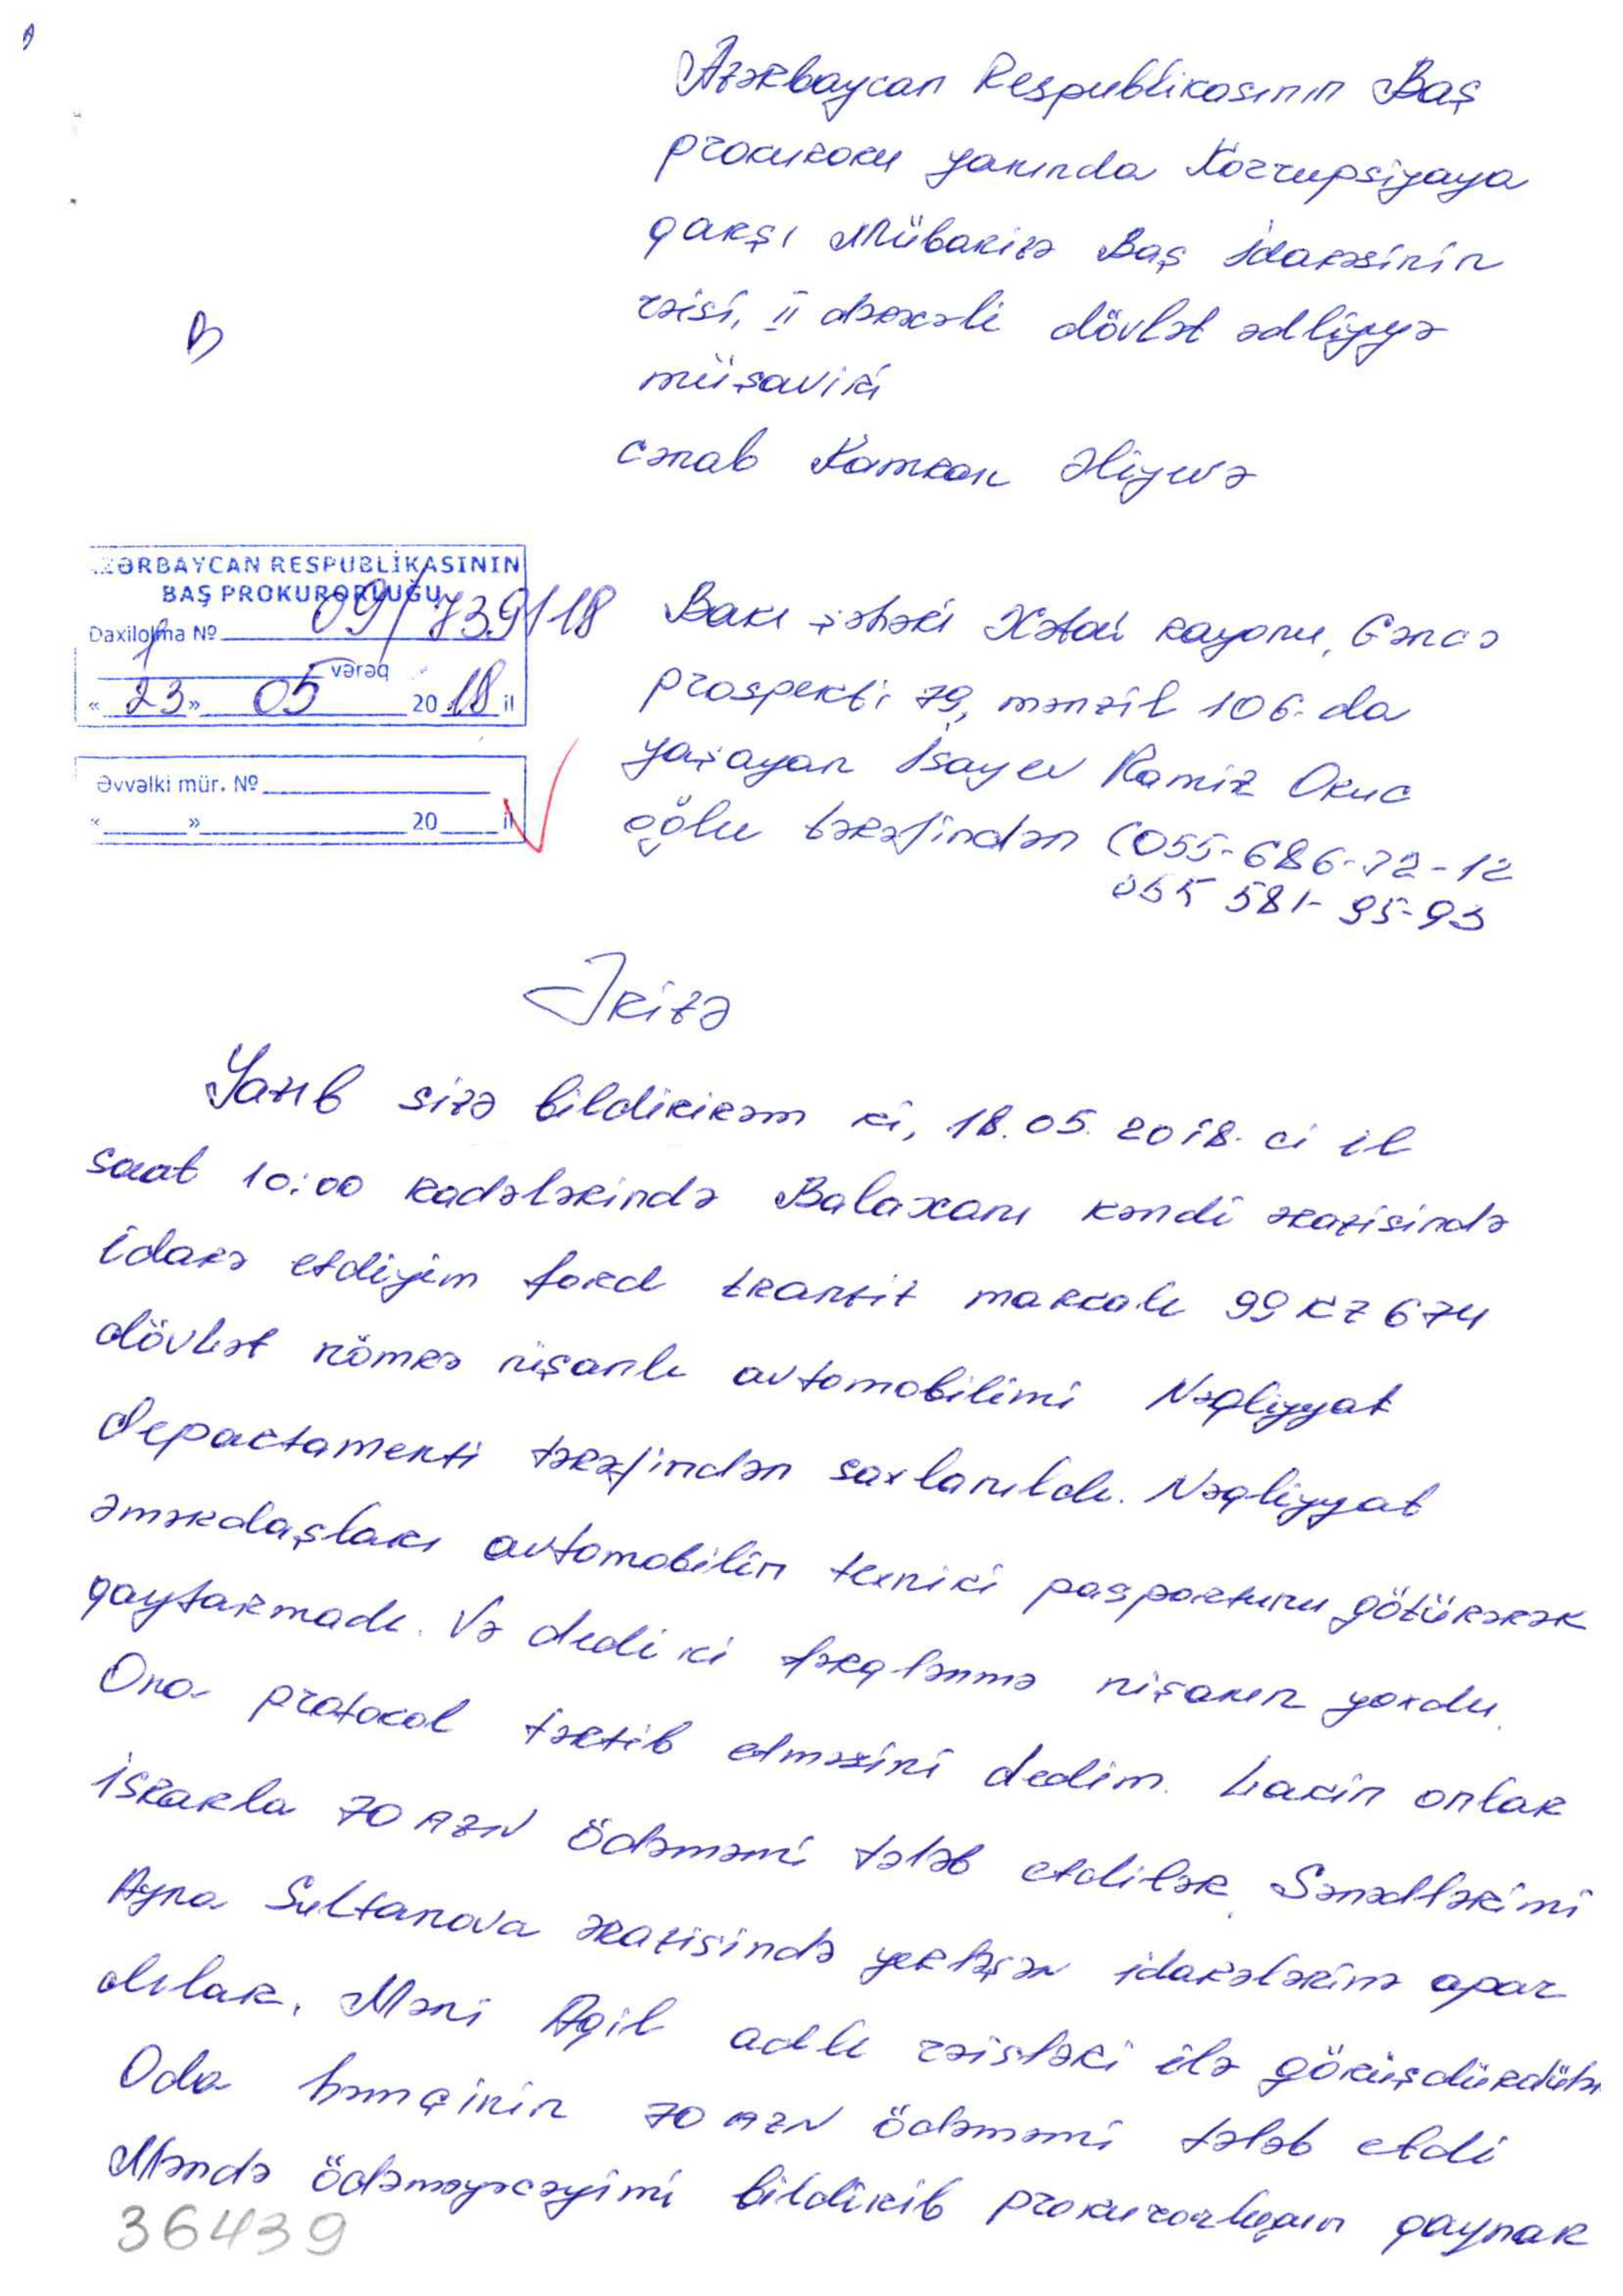 Azərbaycan Respublikasının Baş
prokuroru yanında Korrupsiyaya
qarşı Mübarizə Baş İdarəsinin
rəisi, II dərəcəli dövlət ədliyyə
müşaviri
cənab Kamran Əliyevə
AZƏRBAYCAN RESPUBLİKASININ
BAŞ PROKURORLUĞU
Daxilolma № 09/739/18
vərəq
« 23 » 05 2018 il
Əvvəlki mür. №
« » 20 il
Bakı şəhəri Xətai rayonu, Gəncə
prospekti 79, mənzil 106-da
yaşayan İsayev Ramiz Oruc
oğlu tərəfindən (055-686-72-12
055 581-95-93
Ərizə
Yazıb sizə bildirirəm ki, 18.05.2018-ci il
saat 10:00 radələrində Balaxanı kəndi ərazisində
idarə etdiyim ford tranzit markalı 99 KZ 674
dövlət nömrə nişanlı avtomobilimi Nəqliyyat
departamenti tərəfindən saxlanıldı. Nəqliyyat
əməkdaşları avtomobilin texniki pasportunu götürərək
qaytarmadı. Və dedi ki fərqlənmə nişanın yoxdu.
Ona protokol tərtib etməsini dedim. Lakin onlar
israrla 70 AZN ödəməmi tələb etdilər. Sənədlərimi
Ayna Sultanova ərazisində yerləşən idarələrinə apar
dılar. Məni Aqil adlı rəisləri ilə görüşdürdülər
Oda həmçinin 70 AZN ödəməmi tələb etdi
Məndə ödəməyəcəyimi bildirib prokurorluğun qaynar
36439